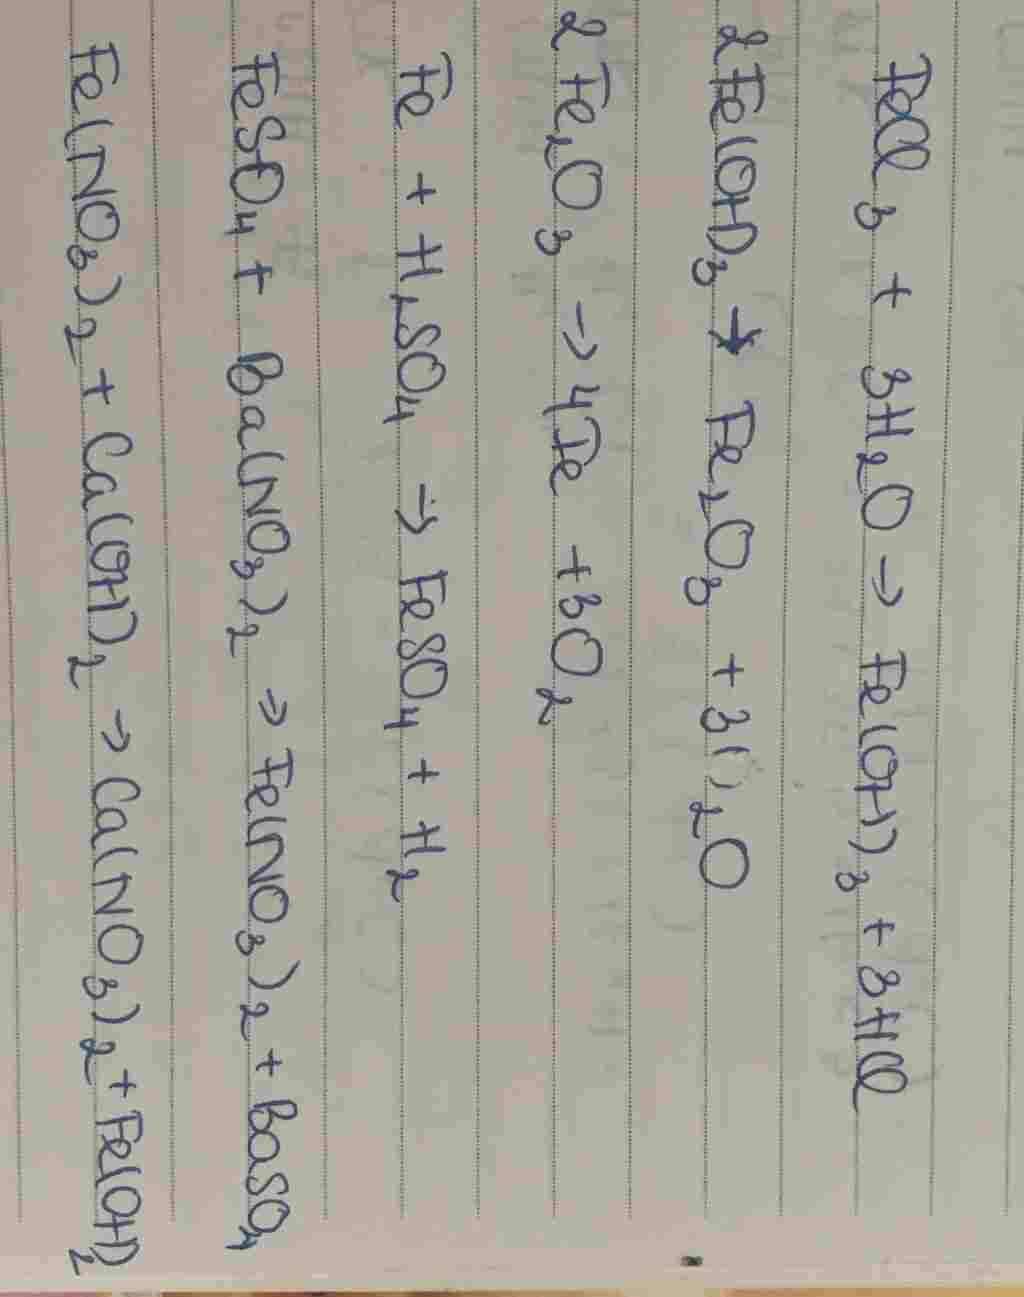 FeCl₃ + 3H₂O → Fe(OH)₃ + 3HCl
2Fe(OH)₃ → Fe₂O₃ + 3( )₂O
2Fe₂O₃ → 4Fe + 3O₂
Fe + H₂SO₄ → FeSO₄ + H₂
FeSO₄ + Ba(NO₃)₂ → Fe(NO₃)₂ + BaSO₄
Fe(NO₃)₂ + Ca(OH)₂ → Ca(NO₃)₂ + Fe(OH)₂